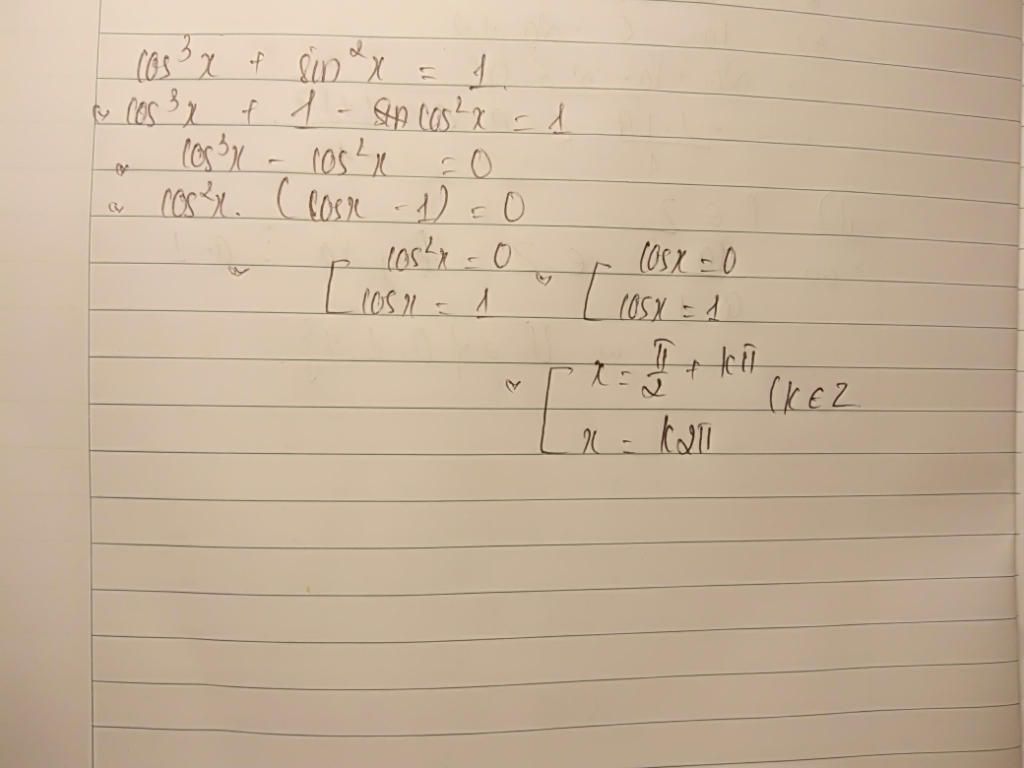 cos³x + sin²x = 1
⇔ cos³x + 1 - cos²x = 1
⇔ cos³x - cos²x = 0
⇔ cos²x. (cosx - 1) = 0
⇔ [ cos²x = 0 ⇔ [ cosx = 0
cosx = 1 cosx = 1
⇔ [ x = π/2 + kπ (k ∈ Z
x = k2π